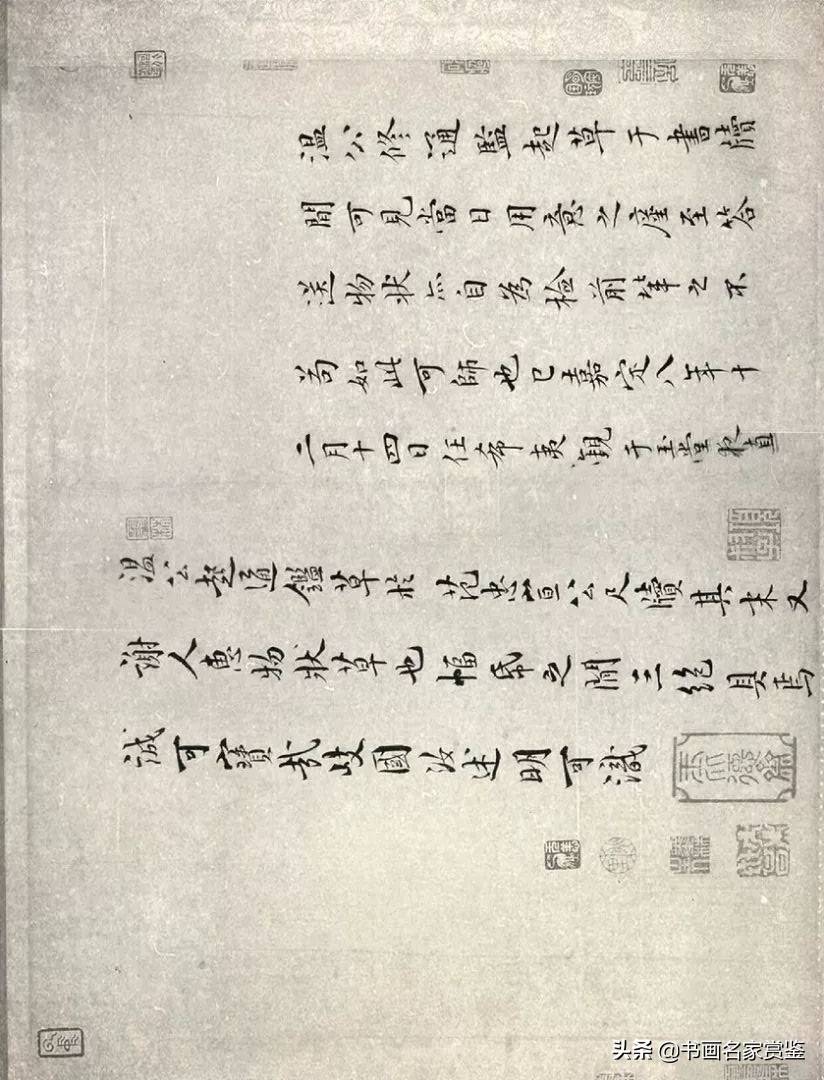 溫公修通監起草于書牘
間可見當日用意之廑至答
送物狀亦自為檢前輩之不
苟如此可師也已嘉定八年十
二月十四日任希夷觀于玉堂夜直
溫公起通鑑草於 范忠宣公尺牘其末又
謝人惠物狀草也幅紙之間三絕具焉
誠可寶哉歧國汝述明可識
头条 @书画名家赏鉴